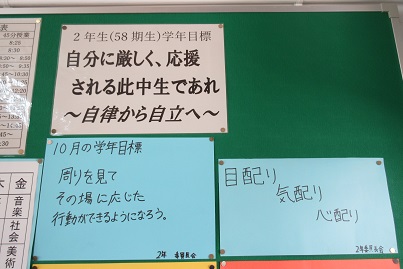 表
45分授業
2年生(58期生)学年目標
自分に厳しく、応援
される此中生であれ
～自律から自立へ～
10月の学年目標
周りを見て
その場に応じた
行動ができるようになろう。
2年 委員会
目配り
気配り
心配り
2年委員会
木 金
音楽
社会
美術